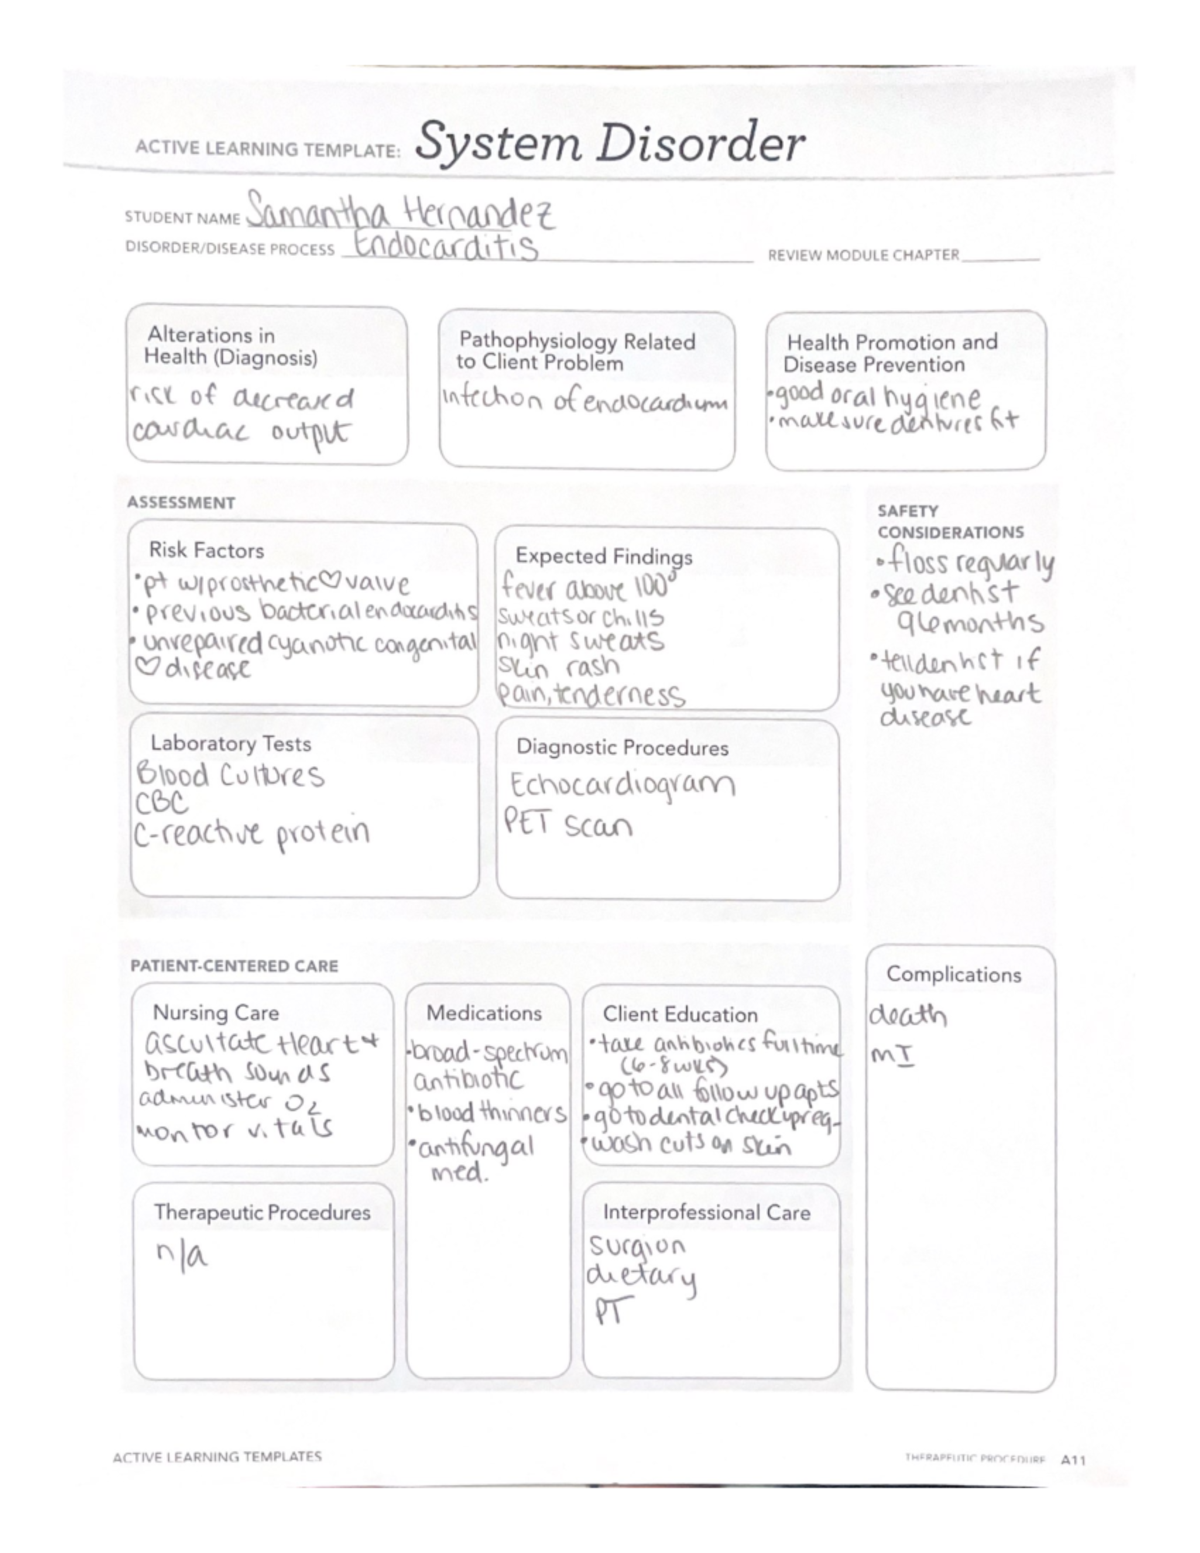 ACTIVE LEARNING TEMPLATE: System Disorder
STUDENT NAME Samantha Hernandez
DISORDER/DISEASE PROCESS Endocarditis
REVIEW MODULE CHAPTER
Alterations in
Health (Diagnosis)
risk of decreased
cardiac output
Pathophysiology Related
to Client Problem
infection of endocardium
Health Promotion and
Disease Prevention
•good oral hygiene
•make sure dentures fit
ASSESSMENT
Risk Factors
•pt w/prosthetic♡valve
•previous bacterial endocarditis
•unrepaired cyanotic congenital
♡disease
Expected Findings
fever above 100°
sweats or chills
night sweats
skin rash
pain, tenderness
Laboratory Tests
Blood Cultures
CBC
C-reactive protein
Diagnostic Procedures
Echocardiogram
PET scan
SAFETY
CONSIDERATIONS
•floss regularly
•see dentist
q6months
•tell dentist if
you have heart
disease
PATIENT-CENTERED CARE
Nursing Care
ascultate Heart +
breath sounds
administer O2
monitor vitals
Medications
•broad-spectrum
antibiotic
•blood thinners
•antifungal
med.
Client Education
•take antibiotics full time
(6-8wks)
•go to all follow up apts
•go to dental checkup reg.
•wash cuts on skin
Therapeutic Procedures
n/a
Interprofessional Care
surgion
dietary
PT
Complications
death
MI
ACTIVE LEARNING TEMPLATES
THERAPEUTIC PROCEDURE A11